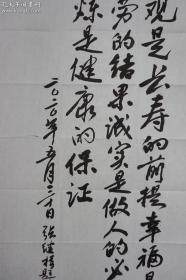 观是长寿的前提幸福是
劳的结果诚实是做人的必
炼是健康的保证
二〇二〇年五月三十日 张继